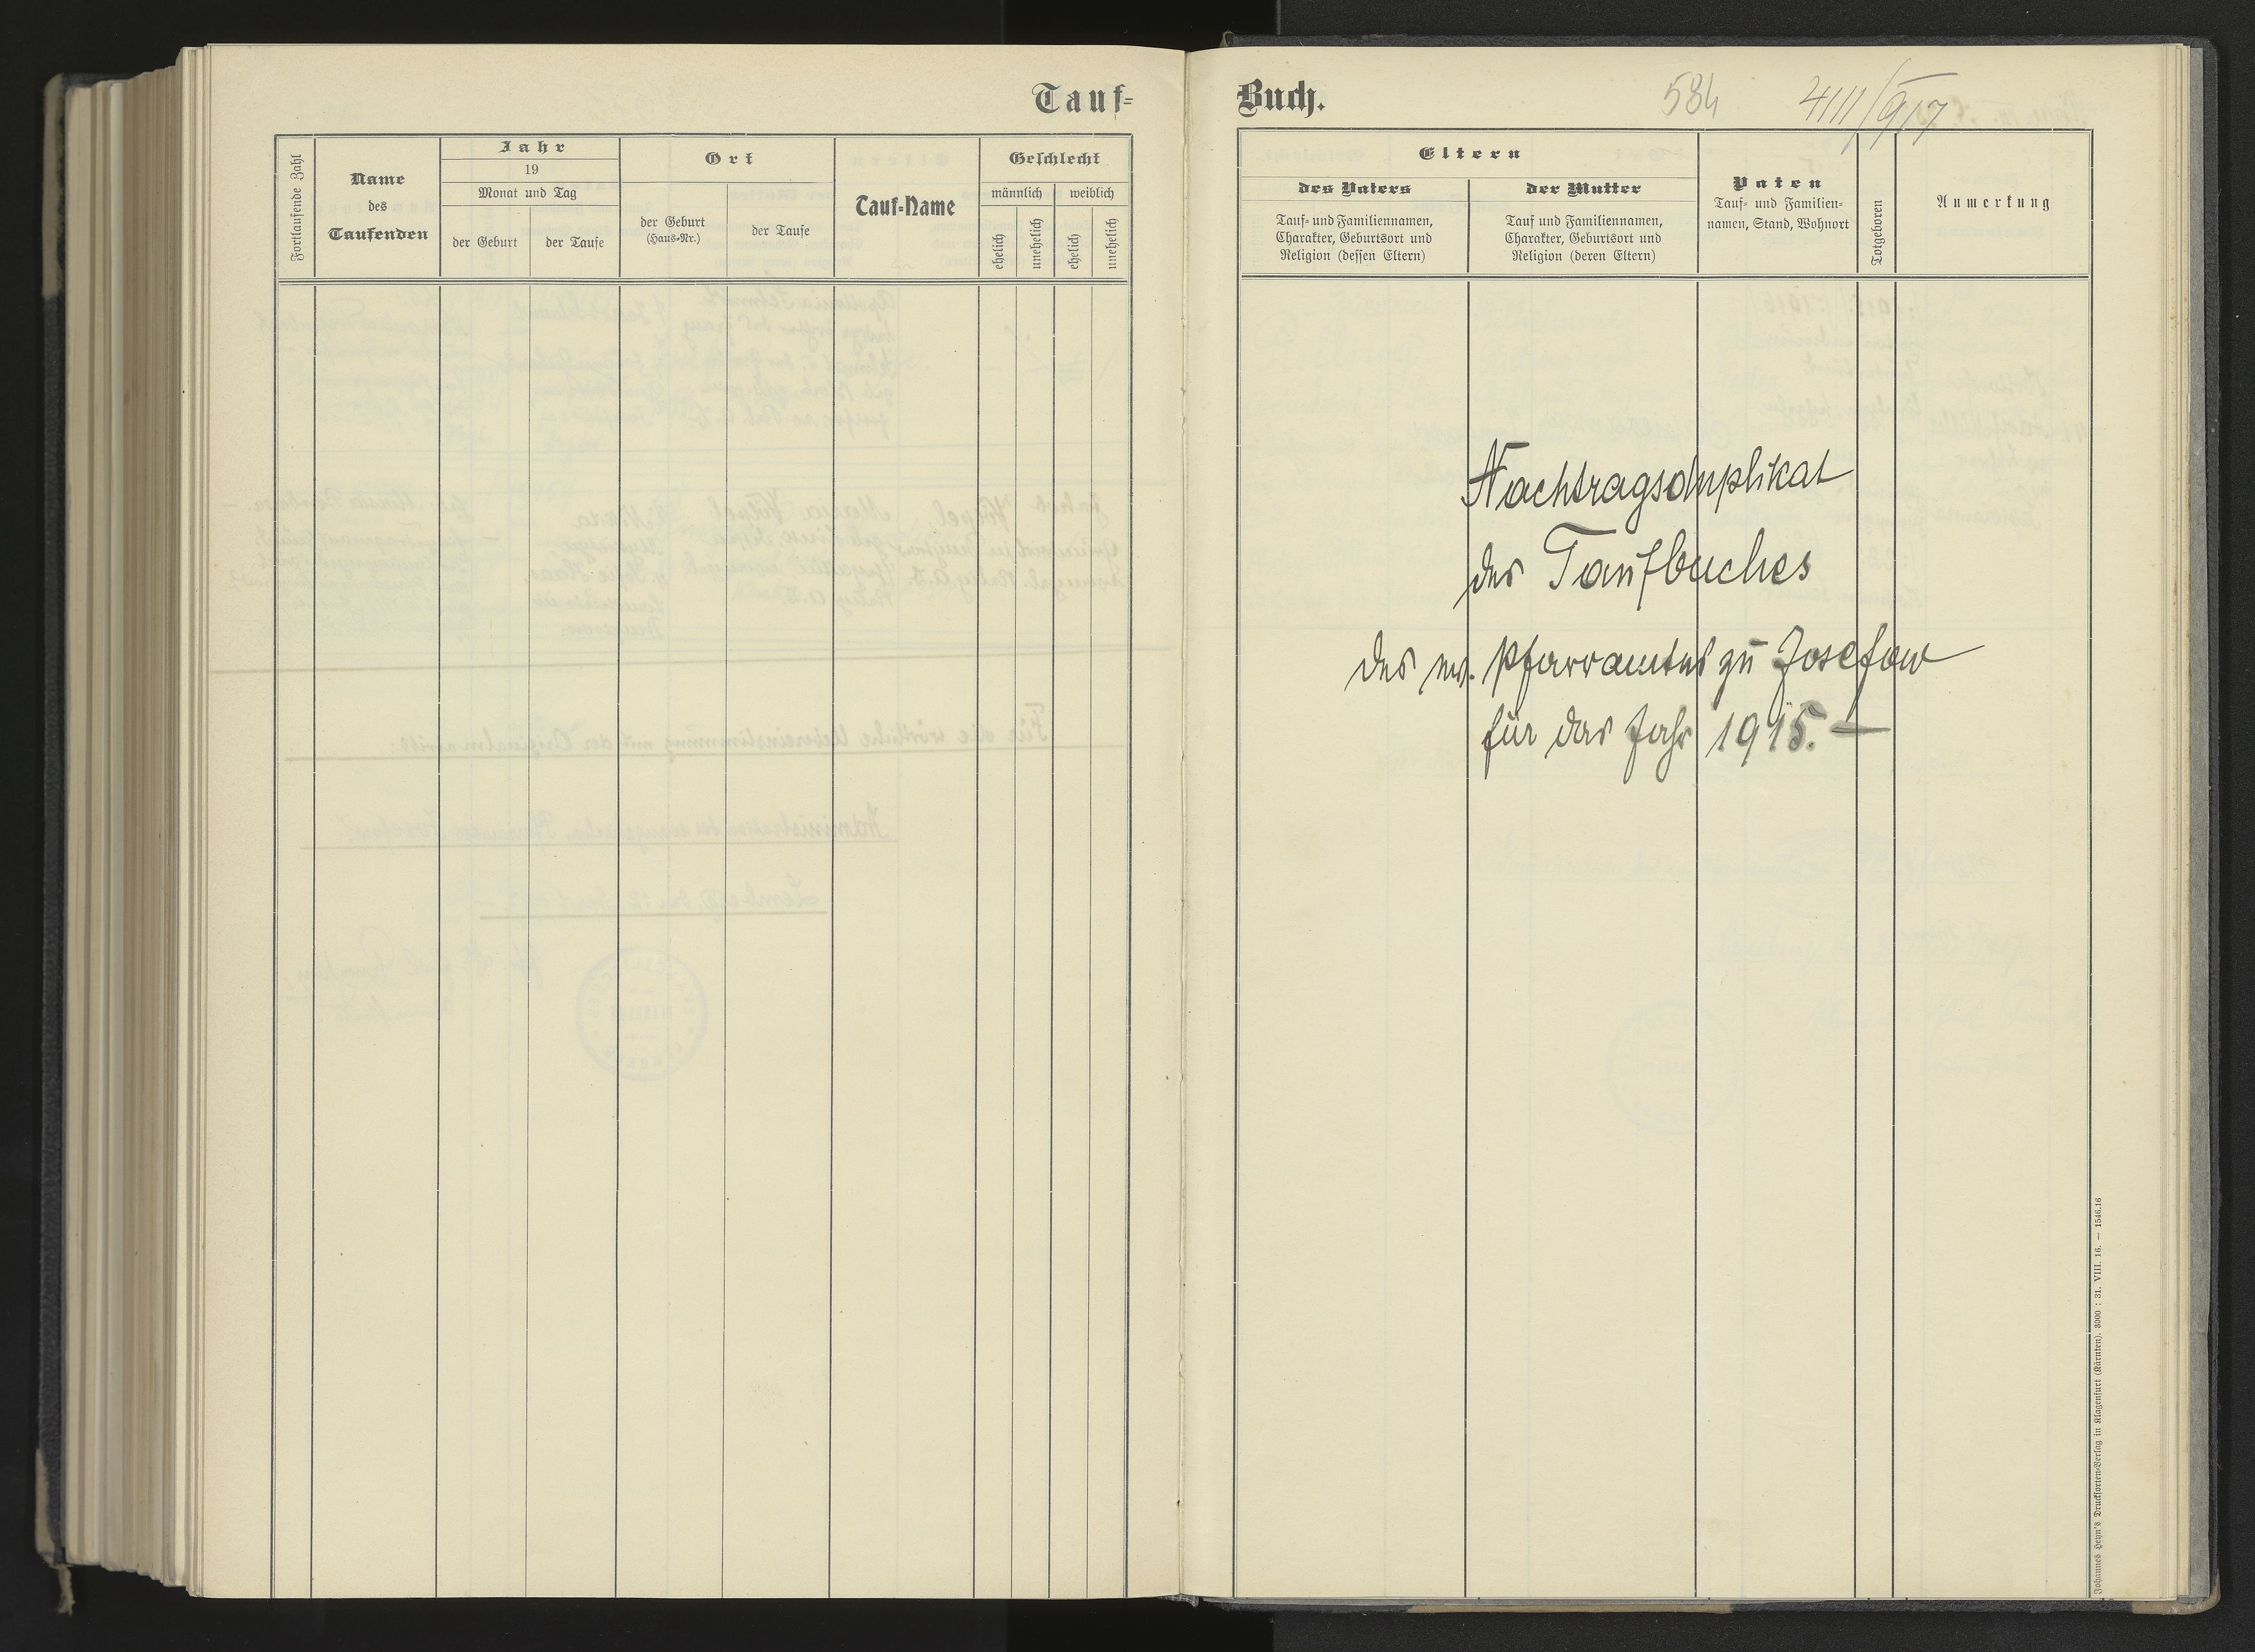 Tauf=
Fortlaufende Zahl
Name
des
Taufenden
Jahr
19
Monat und Tag
der Geburt
der Taufe
Ort
der Geburt
(Haus-Nr.)
der Taufe
Tauf-Name
Geschlecht
männlich
weiblich
ehelich
unehelich
ehelich
unehelich
Buch.
584
4111/917
Eltern
des Vaters
Tauf- und Familiennamen,
Charakter, Geburtsort und
Religion (dessen Eltern)
der Mutter
Tauf und Familiennamen,
Charakter, Geburtsort und
Religion (deren Eltern)
Paten
Tauf- und Familien-
namen, Stand, Wohnort
Totgeboren
Anmerkung
Nachtragsduplikat
des Taufbuches
des ev. Pfarramtes zu Josefow
für das Jahr 1915. —
Johannes Heyn's Drucksorten-Verlag in Klagenfurt (Kärnten). 3000 : 31. VIII. 16. — 1546.16